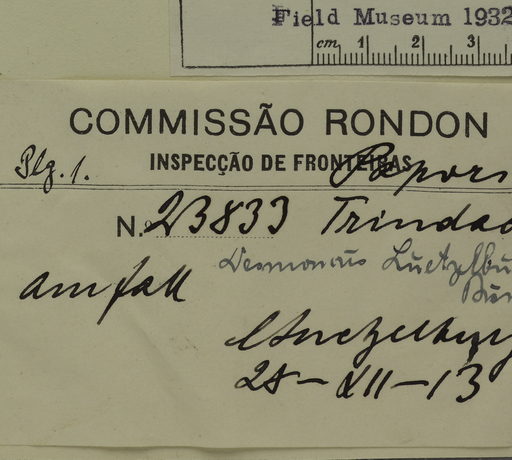 Field Museum 1932
cm 1 2 3
COMMISSÃO RONDON
Plg. 1.
INSPECÇÃO DE FRONTEIRAS
N.º 23833 Trindad
am fall
Luetzelburg
28-XII-13